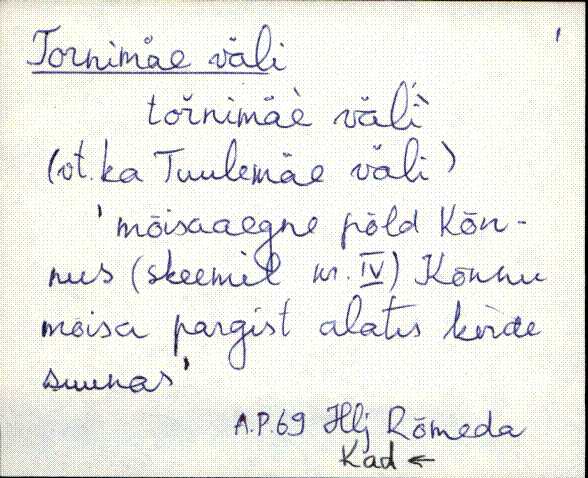 Tornimäe väli
tořnimäè väĺì
(vt. ka Tuulemäe väli)
'mõisaaegne põld Kõn-
nus (skeemil nr. IV) Kõnnu
mõisa pargist alates kirde
suunas'
A.P.69 Hlj Rõmeda
Kad ←